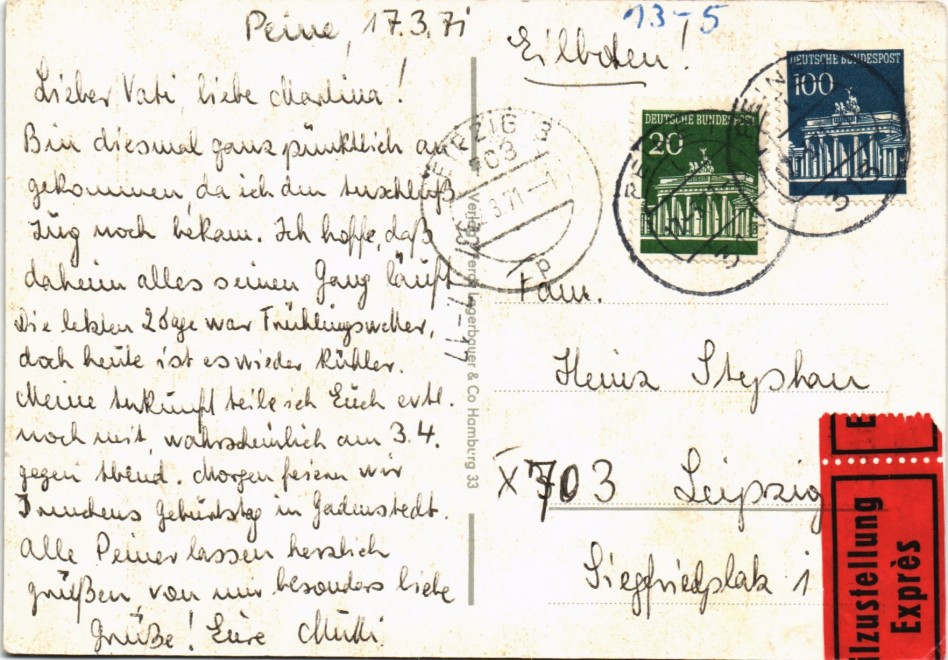 Peine, 17.3.71
13-5
Eilboten!
Lieber Vati, liebe Martina!
Bin diesmal ganz pünktlich an
gekommen, da ich den Anschluß-
zug noch bekam. Ich hoffe, daß
daheim alles seinen Gang läuft
Die letzten 2 Tage war Frühlingswetter,
doch heute ist es wieder kühler.
Meine Ankunft teile ich Euch evtl.
noch mit, wahrscheinlich am 3.4.
gegen Abend. Morgen feiern wir
Geburtstag in Gadenstedt.
Alle Peiner lassen herzlich
grüßen, von mir besonders liebe
Grüße! Eure Mutti
DEUTSCHE BUNDESPOST
20
DEUTSCHE BUNDESPOST
100
LEIPZIG 3
703
3.71-1
p
Verlag Lagerbauer & Co Hamburg 33
Fam.
Heinz Stephan
X703 Leipzig
Siegfriedplatz 1
E
lzustellung
Exprès